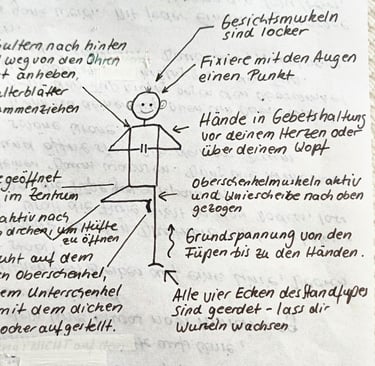 Gesichtsmuskeln
sind locker
Fixiere mit den Augen
einen Punkt
Hände in Gebetshaltung
vor deinem Herzen oder
über deinem Wopf
Oberschenkelmuskeln aktiv
und Wniescheibe nach oben
gezogen
Grundspannung von den
Füßen bis zu den Händen.
Alle vier Ecken des Standfußes
sind geerdet - lass dir
Wurzeln wachsen.
ultern nach hinten
weg von den Ohren
t anheben,
lterblätter
mmenziehen
geöffnet
im Zentrum
aktiv nach
drehen, um Hüfte
zu öffnen
uht auf dem
en Oberschenkel,
em Unterschenkel
mit dem dichen
ocher aufgestellt.